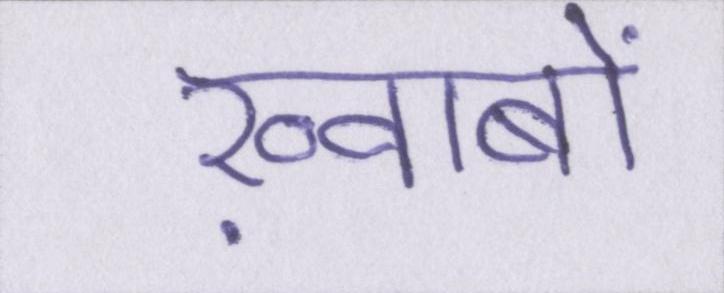 ख़्वाबों